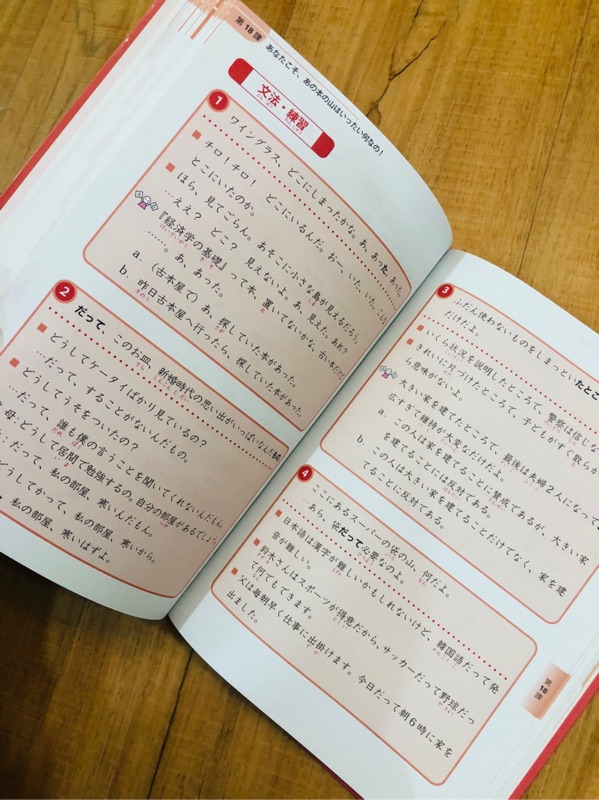 第18課
あなたこそ、あの本の山はいったい何なの!
文法・練習
1
ワイングラス、どこにしまったかな。あ、あった、あった。
チロ!チロ! どこにいるんだ。おー、いた、いた。こんな
とこにいたのか。
ほら、見てごらん。あそこに小さな島が見えるだろう。
…ええ? どこ? 見えないよ。あ、見えた。あれ?
『経済学の基礎』って本、置いてないかな。古い本だけど
……。あ、あった。
a. (古本屋で)あ、探していた本があった。
b. 昨日古本屋へ行ったら、探していた本があった。
2
だって、このお皿、新婚時代の思い出がいっぱいなんだもの。
どうしてケータイばかり見ているの?
…だって、することがないんだもの。
どうしてうそをついたの?
…だって、誰も僕の言うことを聞いてくれないんだもん。
母:どうして居間で勉強するの。自分の部屋があるでしょう。
:だって、私の部屋、寒いんだもん。
どうしてかって、私の部屋、寒いから。
私の部屋、寒いはずよ。
3
ふだん使わないものをしまっといたところ
だけだよ。
いくら状況を説明したところで、警察は信じな
きれいに片づけたところで、子どもがすぐ散らか
ら意味がないよ。
大きい家を建てたところで、最後は夫婦2人になって
広すぎて維持が大変なだけだよ。
a. この人は家を建てることに賛成であるが、大きい家
を建てることには反対である。
b. この人は大きい家を建てることだけでなく、家を建
てることに反対である。
4
ここにあるスーパーの袋の山、何だよ。
あら、袋だって必要なのよ。
日本語は漢字が難しいかもしれないけど、韓国語だって発
音が難しい。
鈴木さんはスポーツが得意だから、サッカーだって野球だっ
て何でもできます。
父は毎朝早く仕事に出掛けます。今日だって朝6時に家を
出ました。
第18課